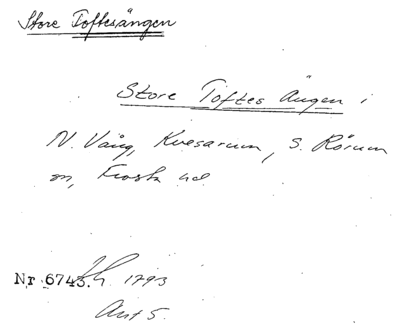 Store Toftesängen
Store Toftes Ängen i
N. Vång, Kvesarum, S. Rörum
sn, Frosta hd
Nr 6743. Lh. 1793
Akt 5.